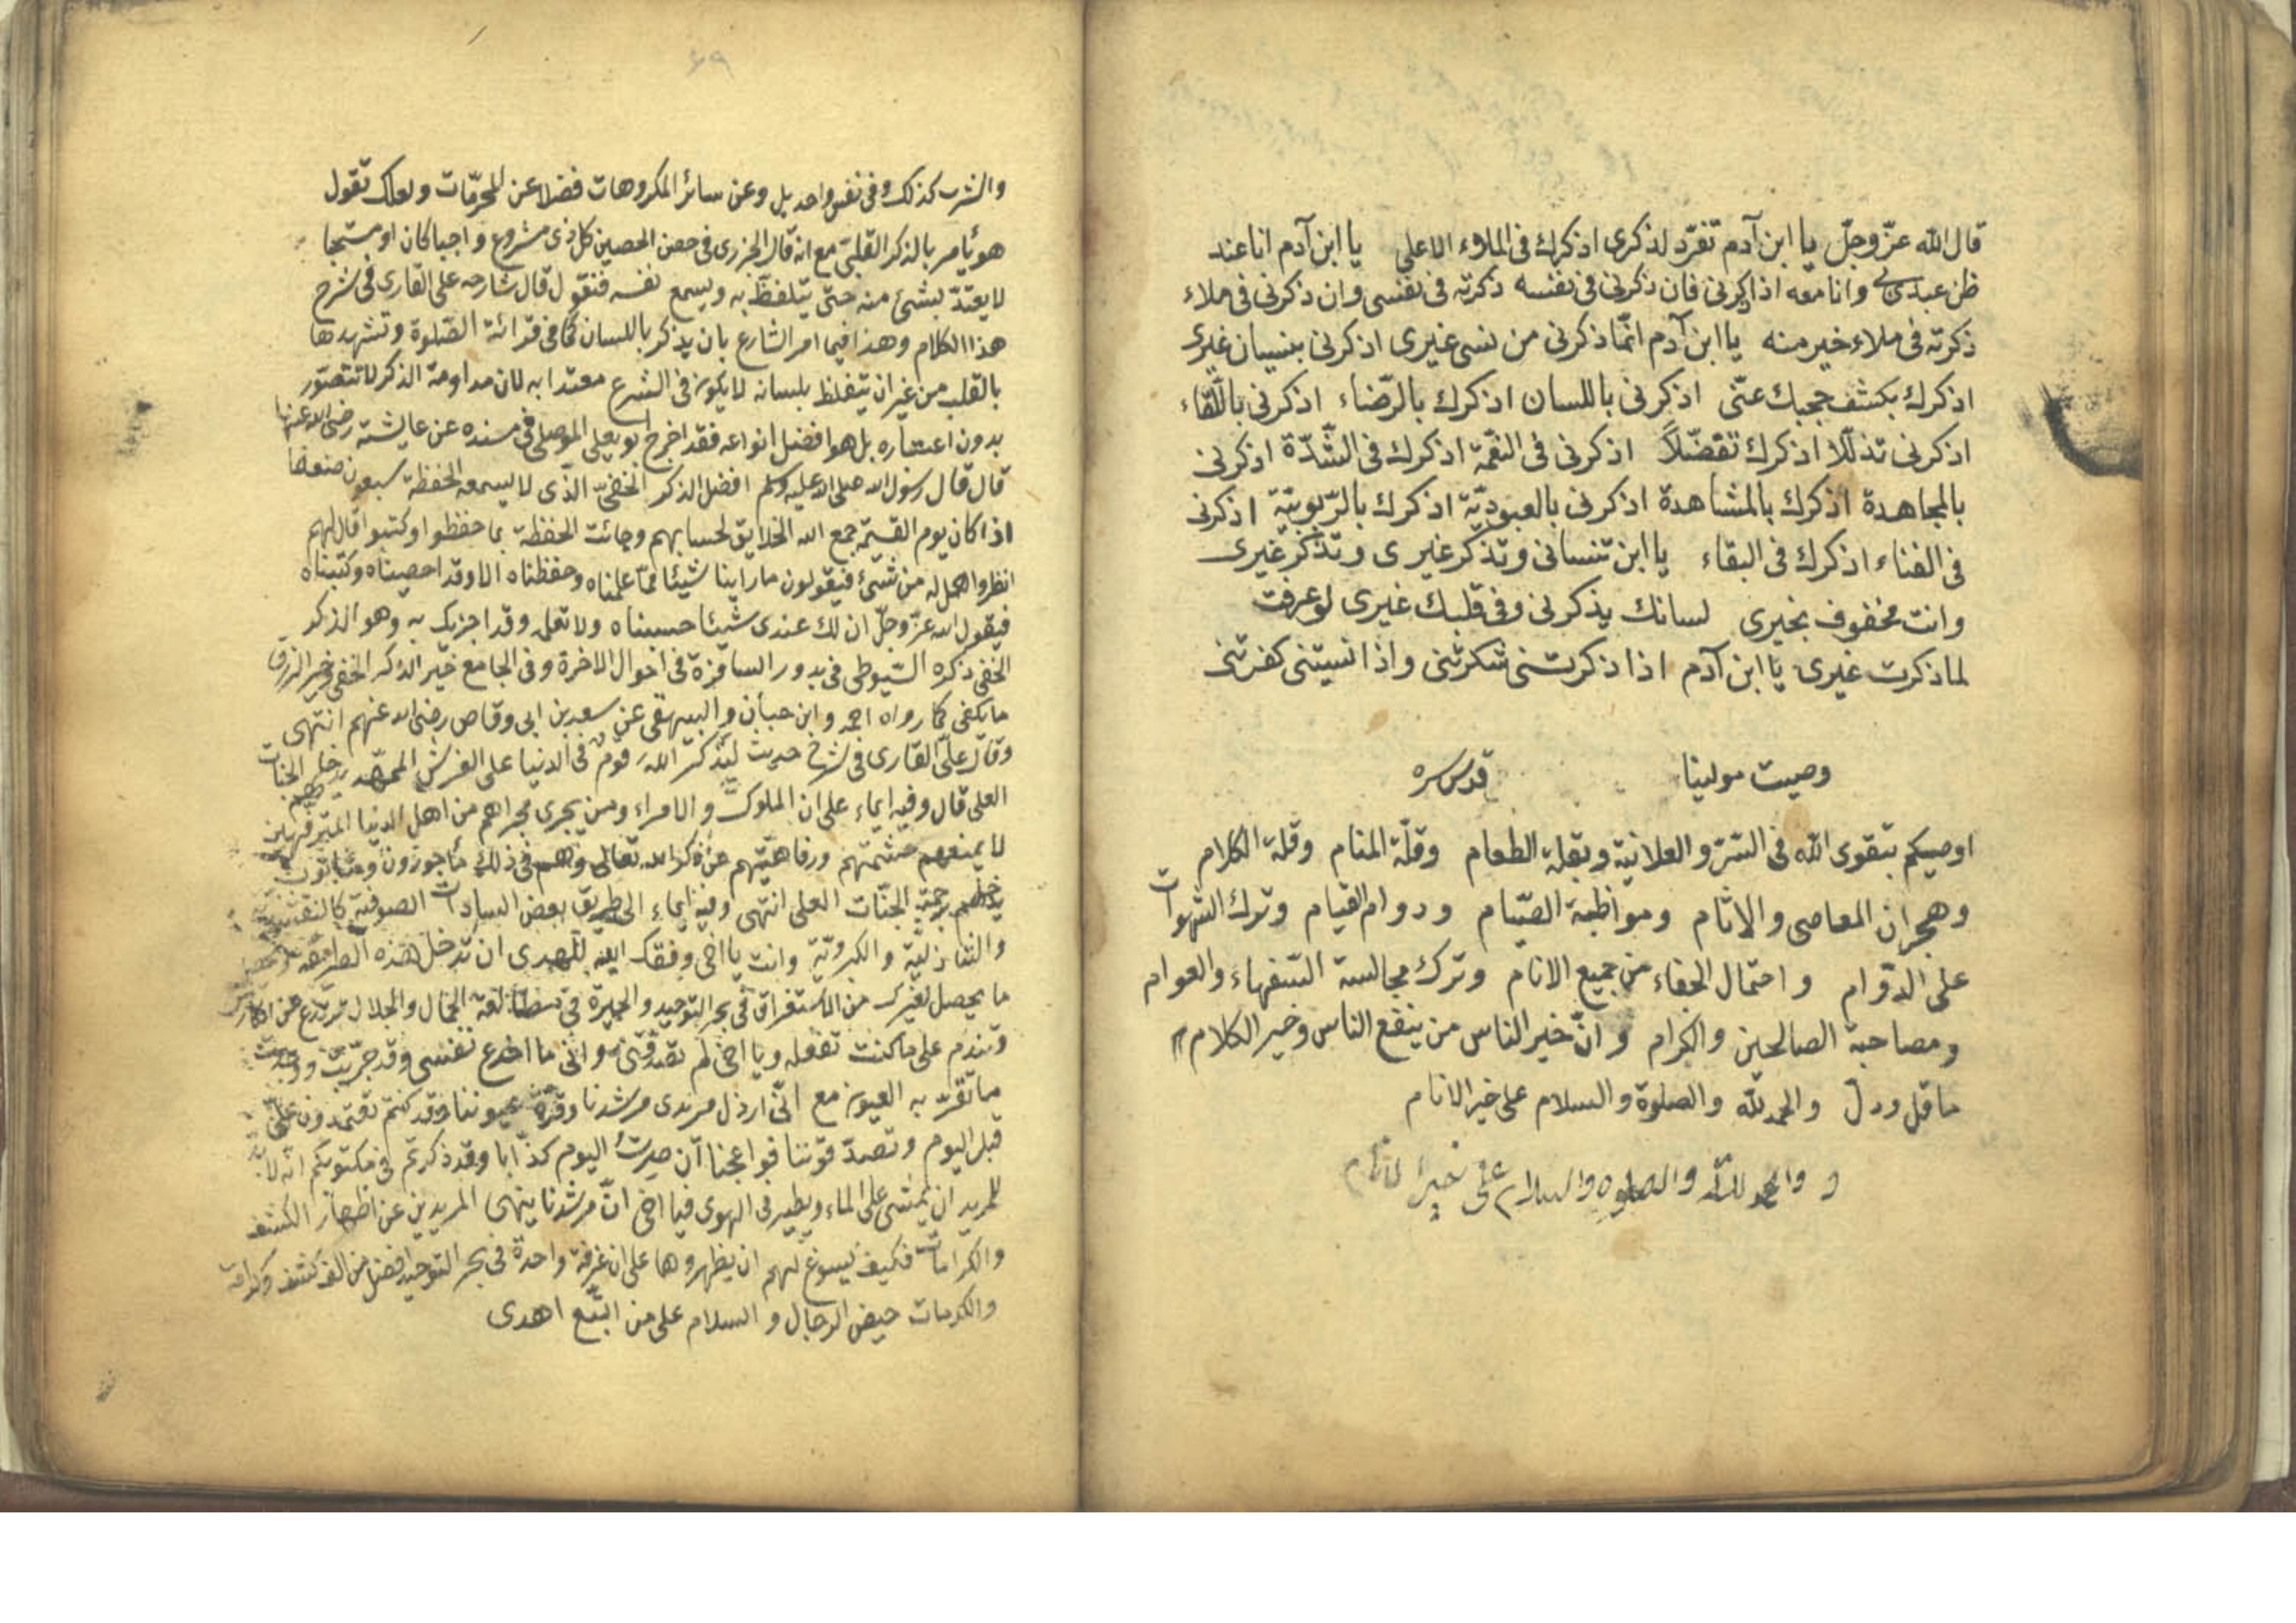 قال الله عزّ وجلّ يا ابن آدم تفرّد لذكرى اذكرك فى الملاء الاعلى يا ابن آدم انا عند
ظن عبدى لى وانا معه اذا ذكرنى فان ذكرنى فى نفسه ذكرته فى نفسى وان ذكرنى فى ملاء
ذكرته فى ملاء خير منه يا ابن آدم انّما ذكرنى من نسى غيرى اذكرنى بنسيان غيرى
اذكرك بكشف حجبك عنّى اذكرنى باللسان اذكرك بالرّضاء اذكرنى باللّقاء
اذكرنى تذلّلا اذكرك تفضّلاً اذكرنى فى النعّمة اذكرك فى الشّدّة اذكرنى
بالمجاهدة اذكرك بالمشاهدة اذكرنى بالعبوديّة اذكرك بالرّبوبيّة اذكرنى
فى الفناء اذكرك فى البقاء يا ابن تنسانى وتذكر غيرى وتذكر غيرى
وانت محفوف بخيرى لسانك يذكرنى وفى قلبك غيرى لو عرفت
لما ذكرت غيرى يا ابن آدم اذا ذكرتنى شكرتنى واذا نسيتنى كفرتنى
وصيت مولينا قدس سره
اوصيكم بتقوى الله فى السّرّ والعلانية وبقلة الطعام وقلّة المنام وقلة الكلام
وهجران المعاصى والاثام ومواظبة الصّيام ودوام القيام وترك الشهوات
على الدّوام واحتمال الجفاء من جميع الانام وترك مجالسة السّفهاء والعوام
ومصاحبة الصالحين والكرام وانّ خير الناس من ينفع الناس وخير الكلام
ما قل ودلّ والحمد لله والصلوة والسلام على خير الانام
و والحمد لله والصلوه والسلام على خير الانام
٦٩
والشرب كذلك وفى نفس واحد بل وعن سائر المكروهات فضلا عن المحرّمات ولعلك تقول
هو يأمر بالذكر القلبىّ مع انه قال الجزرى فى حصن الحصين كل ذى مشروع واجبا كان او مستحبا
لا يعتدّ بشئ منه حتّى يتلفّظ به ويسمع نفسه فنقول قال شارحه على القارى فى شرح
هذا الكلام وهذا فيما امر الشارع بان يذكر باللسان كما فى قرائة الصّلوة وتشهدها
بالقلب من غير ان يتفلظ بلسانه لا يكون فى الشرع معتدا به لان مداومة الذكر لا تتصوّر
بدون اعتباره بل هو افضل انواعه فقد اخرج ابو يعلى الموصلى فى مسنده عن عايشة رضى الله عنها
قال قال رسول الله صلى الله عليه وسلم افضل الذكر الخفىّ الّذى لا يسمعه الحفظة سبعون ضعفا
اذا كان يوم القيمة جمع الله الخلايق لحسابهم وجائت الحفظة بما حفظوا وكتبوا قال لهم
انظروا هل له من شئ فيقولون ما راينا شيئا ممّا علمناه وحفظناه الا وقد احصيناه وكتبناه
فيقول الله عزّ وجلّ ان لك عندى شيئا حسيناه ولا تعلمه وقد اجزيك به وهو الذكر
الخفى ذكره السّيوطى فى بدور السافرة فى احوال الاخرة وفى الجامع خير الذكر الخفى وخير الرزق
ما يكفى كما رواه احمد وابن حبان والبيهقى عن سعد بن ابى وقاص رضى الله عنهم انتهى
وقال علىّ القارى فى شرح حديث ليذكر الله قوم فى الدنيا على الفرش الممهّد يدخلهم الجنات
العلى قال وفيه ايماء على ان الملوك والامراء ومن يجرى مجراهم من اهل الدنيا المترفهين
لا يمنعهم حشمتهم ورفاهيّتهم عن ذكر الله تعالى وهم فى ذلك مأجورون ومثابون
يدخلهم برحمته الجنّات العلى انتهى وفيه ايماء الى طريق بعض السادات الصوفية كالنقشبندية
والشاذليّة والكبرويّة وانت يا اخى وفقك الله للهدى ان تدخل هذه
ما يحصل لغيرك من الاستغراق فى بحر التوحيد والحيرة فى الجمال والجلال
وتندم على ما كنت تفعله ويا اخى لم تصدقنى وانى ما اخدع نفسى وقد جرّبت ووجدت
ما تقرّ به العيون مع انّى ارذل مريدى مرشدنا وقرّة عيوننا وقد كنتم تعتمدون علىّ
قبل اليوم وتصدّقوننا فواعجبا ان صرت اليوم كذّابا وقد ذكرتم فى مكتوبكم انه لا بدّ
للمريد ان يمشى على الماء ويطير فى الهوى فيا اخى انّ مرشدنا ينهى المريدين عن اظهار الكشف
والكرامات فكيف يسوغ لهم ان يظهروها على ان غرفة واحدة فى بحر التوحيد افضل من الف كشف وكرامة
والكرمات حيض الرجال والسلام على من اتبّع اهدى